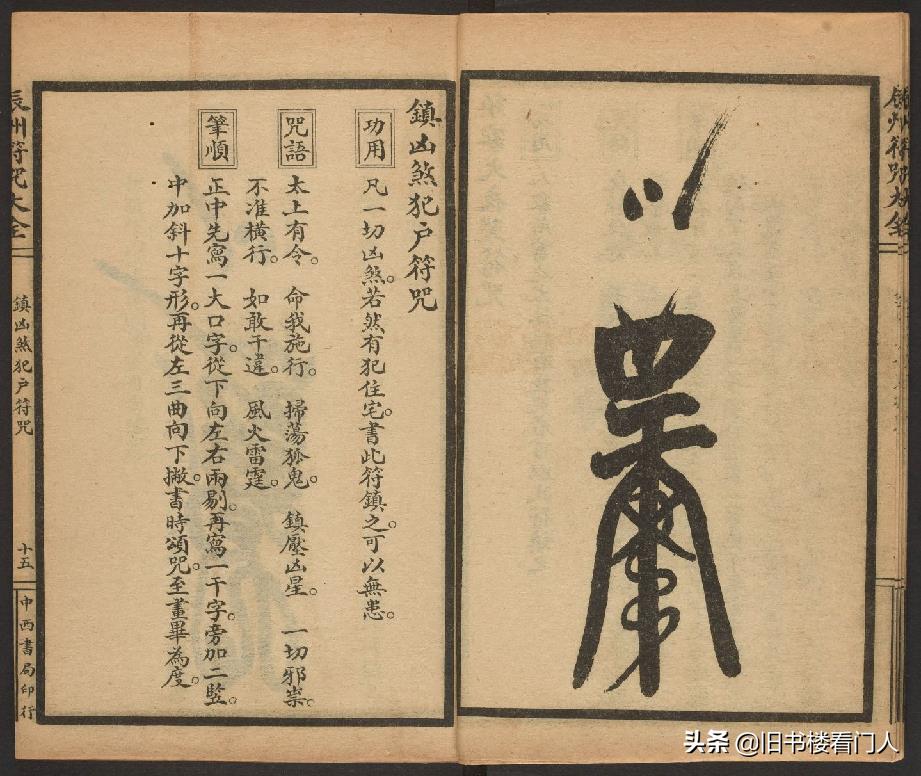 鎮凶煞犯户符咒
功用
凡一切凶煞。若然有犯住宅。書此符鎮之。可以無患。
咒語
太上有令。命我施行。掃蕩狐鬼。鎮壓凶星。一切邪祟。
不准橫行。如敢干違。風火雷霆。
筆順
正中先寫一大口字。從下向左右兩剔。再寫一干字。旁加二竪。
中加斜十字形。再從左三曲向下撇。書時頌咒。至畫畢為度。
辰州符咒大全
鎮凶煞犯户符咒
十五
中西書局印行
头条 @旧书楼看门人